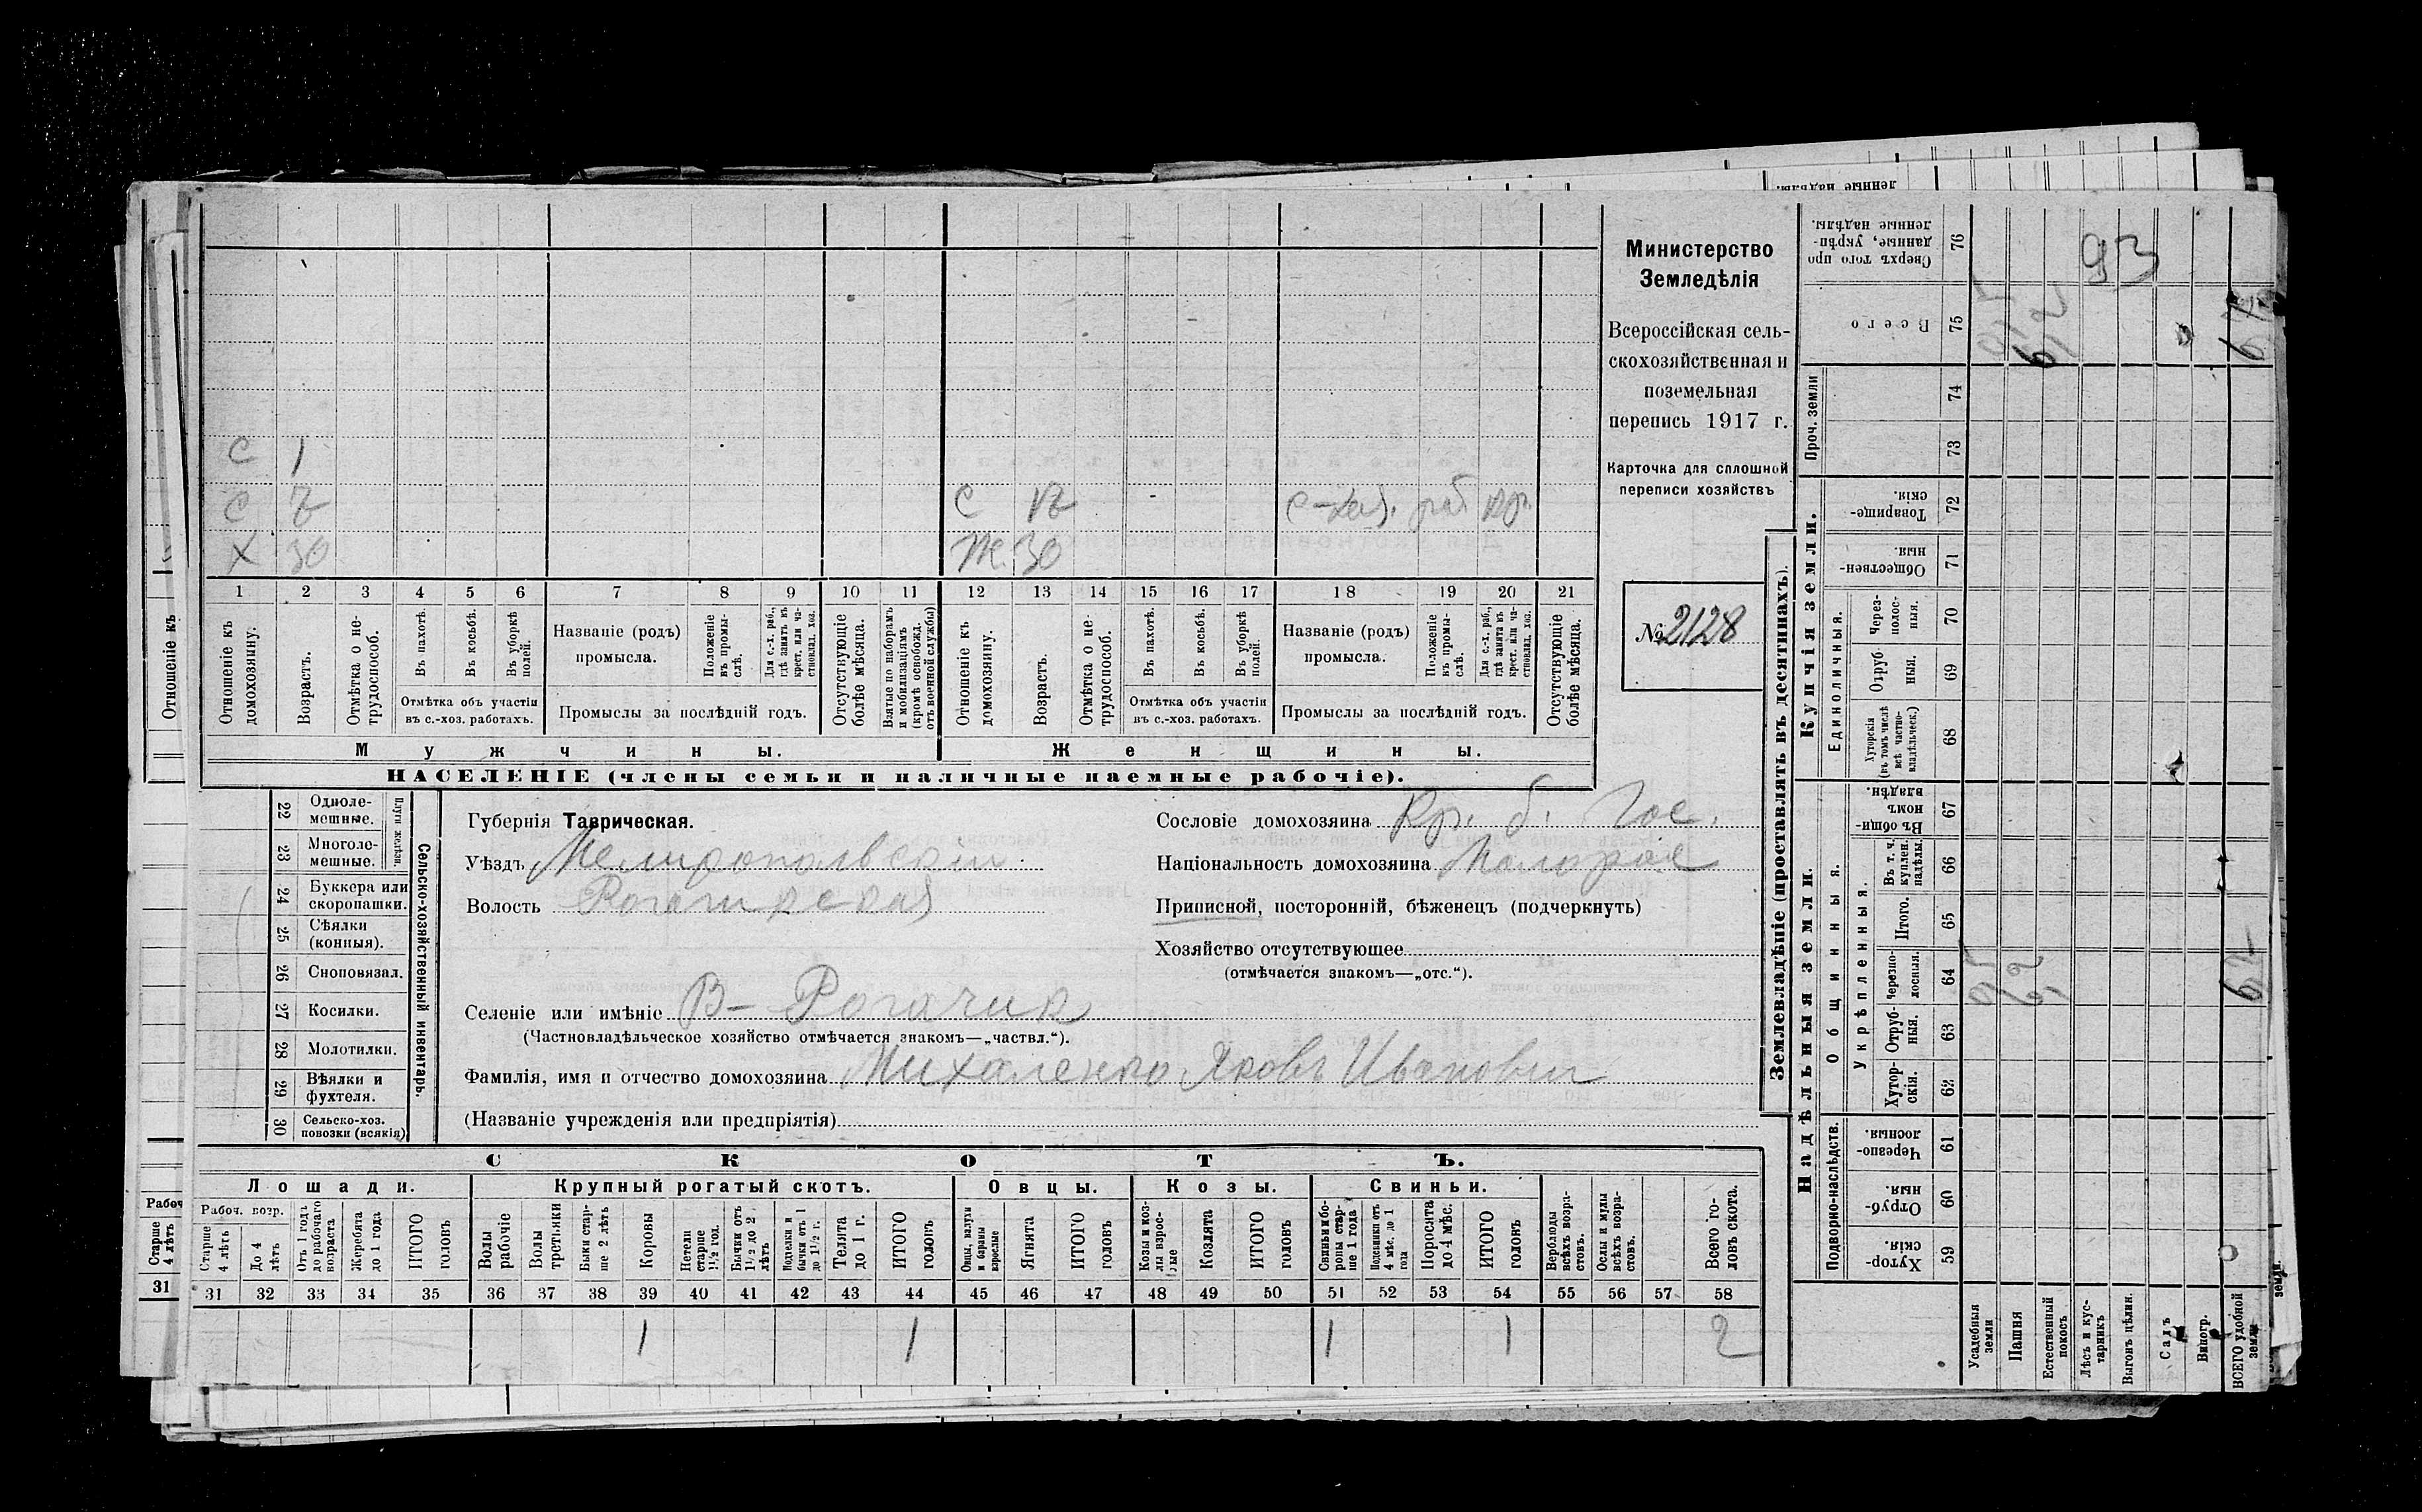 Министерство
Земледѣлія
Всероссійская сель-
скохозяйственная и
поземельная
перепись 1917 г.
Карточка для сплошной
переписи хозяйствъ
№ 2128
С 1
С 2
С
Х 30
Ж. 30
1 2 3 4 5 6 7 8 9 10 11 12 13 14 15 16 17 18 19 20 21
Отношеніе къ домохозяину.
Возрастъ.
Отмѣтка о не-трудоспособ.
Въ пахотѣ.
Въ косьбѣ.
Въ уборкѣ полей.
Отмѣтка объ участіи
въ с.-хоз. работахъ.
Названіе (родъ)
промысла.
Положеніе въ промы-слѣ.
Для с.-х. раб., гдѣ занятъ въ крест. или ча-стновлад. хоз.
Промыслы за послѣдній годъ.
Отсутствующіе болѣе мѣсяца.
Взятые по наборамъ и мобилизаціямъ (кромѣ освобожд. отъ военной службы)
Отношеніе къ домохозяину.
Возрастъ.
Отмѣтка о не-трудоспособ.
Въ пахотѣ.
Въ косьбѣ.
Въ уборкѣ полей.
Отмѣтка объ участіи
въ с.-хоз. работахъ.
Названіе (родъ)
промысла.
Положеніе въ промы-слѣ.
Для с.-х. раб., гдѣ занята въ крест. или ча-стновлад. хоз.
Промыслы за послѣдній годъ.
Отсутствующіе болѣе мѣсяца.
Мужчины.
Женщины.
НАСЕЛЕНІЕ (члены семьи и наличные наемные рабочіе).
Сельско-хозяйственный инвентарь.
Плуги желѣзн.
22 Одноле-мешные.
23 Многоле-мешные.
24 Буккера или скоропашки.
25 Сѣялки (конныя).
26 Сноповязал.
27 Косилки.
28 Молотилки.
29 Вѣялки и фухтеля.
30 Сельско-хоз. повозки (всякія)
Губернія Таврическая.
Уѣздъ Мелитопольскій
Волость Рогачикская
Селеніе или имѣніе В- Рогачик
(Частновладѣльческое хозяйство отмѣчается знакомъ—„частвл.“).
Фамилія, имя и отчество домохозяина Михаленко Яковъ Ивановичъ
(Названіе учрежденія или предпріятія)
Сословіе домохозяина Кр. б. Гос.
Національность домохозяина Малорос
Приписной, посторонній, бѣженецъ (подчеркнуть)
Хозяйство отсутствующее
(отмѣчается знакомъ—„отс.“).
СКОТЪ.
Лошади. Крупный рогатый скотъ. Овцы. Козы. Свиньи.
Рабоч. возр.
Старше 4 лѣтъ
До 4 лѣтъ
Отъ 1 года до рабочаго возраста
Жеребята до 1 года
ИТОГО головъ
Волы рабочіе
Волы третьяки
Быки стар-ше 2 лѣтъ
Коровы
Нетели старше 1½ год.
Бычки отъ 1½ до 2 лѣтъ
Подтелки и бычки отъ 1 до 1½ г.
Телята до 1 г.
ИТОГО головъ
Овцы, валухи и бараны взрослые
Ягнята
ИТОГО головъ
Козы и коз-лы взрос-лые
Козлята
ИТОГО головъ
Свиньи и бо-ровы стар-ше 1 года
Подсвинки отъ 4 мѣс. до 1 года
Поросята до 4 мѣс.
ИТОГО головъ
Верблюды всѣхъ возра-стовъ.
Ослы и мулы всѣхъ возра-стовъ.
Всего го-ловъ скота.
31 32 33 34 35 36 37 38 39 40 41 42 43 44 45 46 47 48 49 50 51 52 53 54 55 56 57 58
1 1 1 1 2
Землевладѣніе (проставлять въ десятинахъ).
Надѣльныя земли.
Купчія земли.
Проч. земли
Подворно-наслѣдств.
Общинныя.
Укрѣпленныя.
Единоличныя.
Сверхъ того про данные, укрѣп-ленные надѣлы. 76
Всего 75
74
73
Товарище-скія. 72
Обществен-ныя. 71
Через-полос-ныя. 70
Отруб-ныя. 69
Хуторскія (въ томъ числѣ всѣ частно-владѣльческ.) 68
Въ общи-номъ владѣн. 67
Въ т. ч. куплен. надѣлы. 66
Итого. 65
Черезпо-лосныя. 64
Отруб-ныя. 63
Хутор-скія. 62
Черезпо-лосныя. 61
Отруб-ныя. 60
Хутор-скія. 59
Усадебныя земли
Пашня
Естественный покосъ
Лѣсъ и кус-тарникъ
Выгонъ цѣлин.
Садъ
Виногр.
ВСЕГО удобной земли
93
Отношеніе къ
Рабоч
Старше 4 лѣтъ
31
земли.